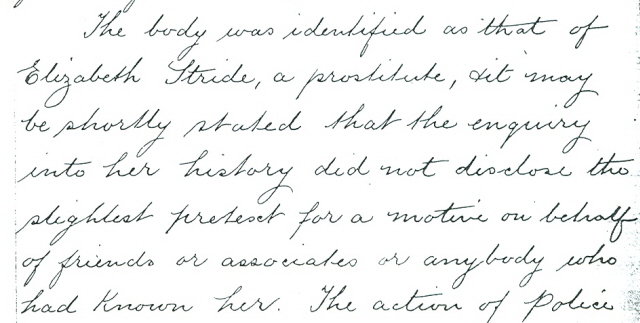 The body was identified as that of
Elizabeth Stride, a prostitute, & it may
be shortly stated that the enquiry
into her history did not disclose the
slightest pretext for a motive on behalf
of friends or associates or anybody who
had known her. The action of Police